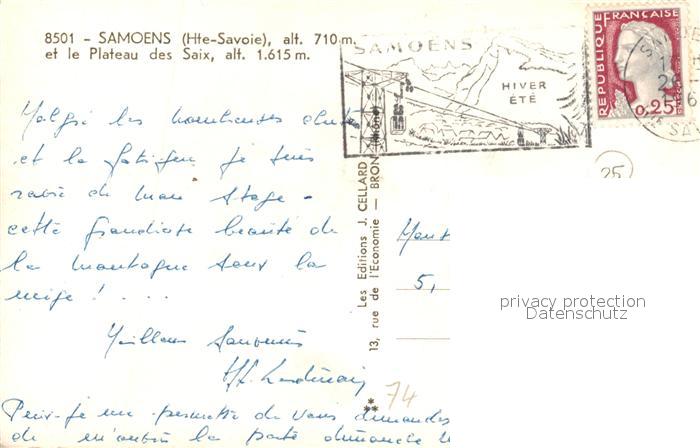 8501 - SAMOENS (Hte-Savoie), alt. 710 m.
et le Plateau des Saix, alt. 1.615 m.
SAMOËNS
HIVER
ÉTÉ
REPUBLIQUE FRANÇAISE
0,25
25
Malgré les nombreuses chutes
et la fatigue je suis
ravie de mon stage -
cette grandiose beauté de
la montagne sous la
neige ! . . .
Meilleurs souvenirs
Les Editions J. CELLARD
13, rue de l'Economie — BRON
5,
privacy protection
Datenschutz
74
Puis-je me permettre de vous demander
de m'ouvrir la porte dimanche